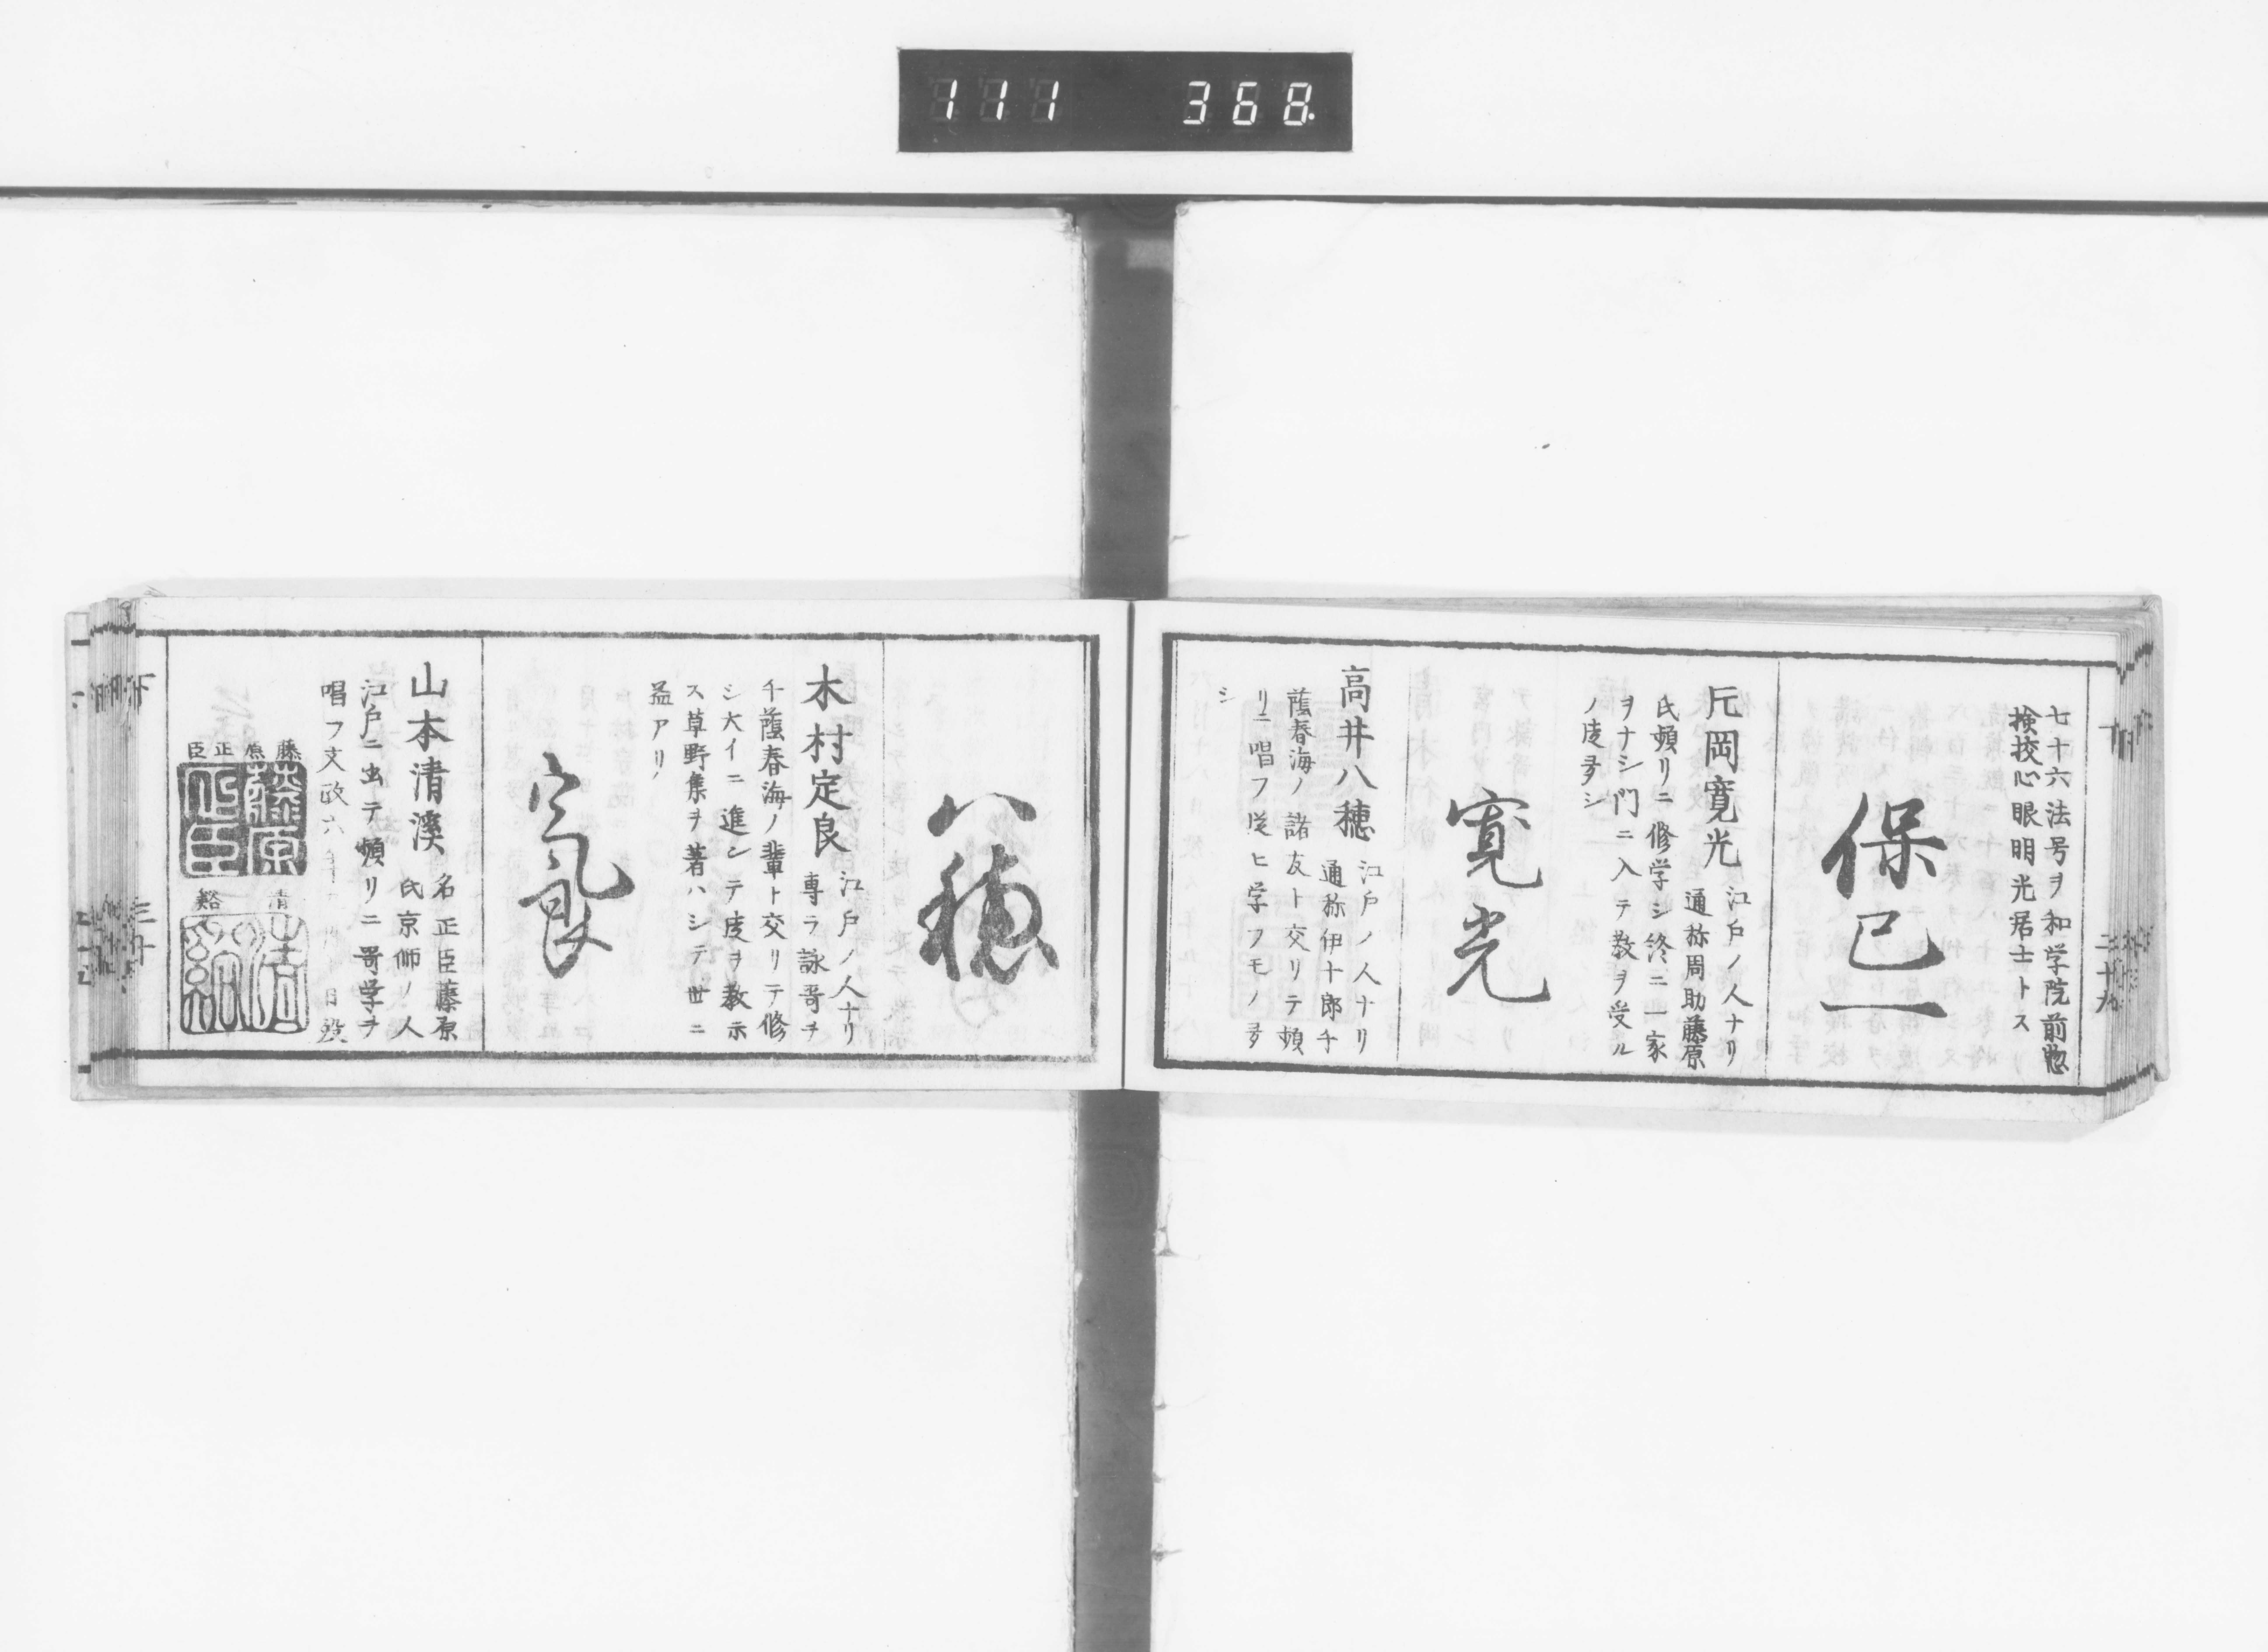 111 368
七十六法号ヲ和学院前惣
検挍心眼明光居士トス
保己一
片岡寛光 江戸ノ人ナリ
通称周助藤原
氏頻リニ修学シ終ニ一家
ヲナシ門ニ入テ教ヲ受ル
ノ徒多シ
寛光
高井八穂 江戸ノ人ナリ
通称伊十郎千
蔭春海ノ諸友ト交リテ頻
リニ唱フ従ヒ学フモノ多
シ
八穂
木村定良 江戸ノ人ナリ
専ラ詠哥ヲ
千蔭春海ノ輩ト交リテ修
シ大イニ進ンテ徒ヲ教示
ス草野集ヲ著ハシテ世ニ
益アリ
定良
山本清溪 名正臣藤原
氏京師ノ人
江戸ニ出テ頻リニ哥学ヲ
唱フ文政六年 月 日歿
藤原
正臣
藤原
正臣
清
谿
清
谿
下
二十九
下
三十